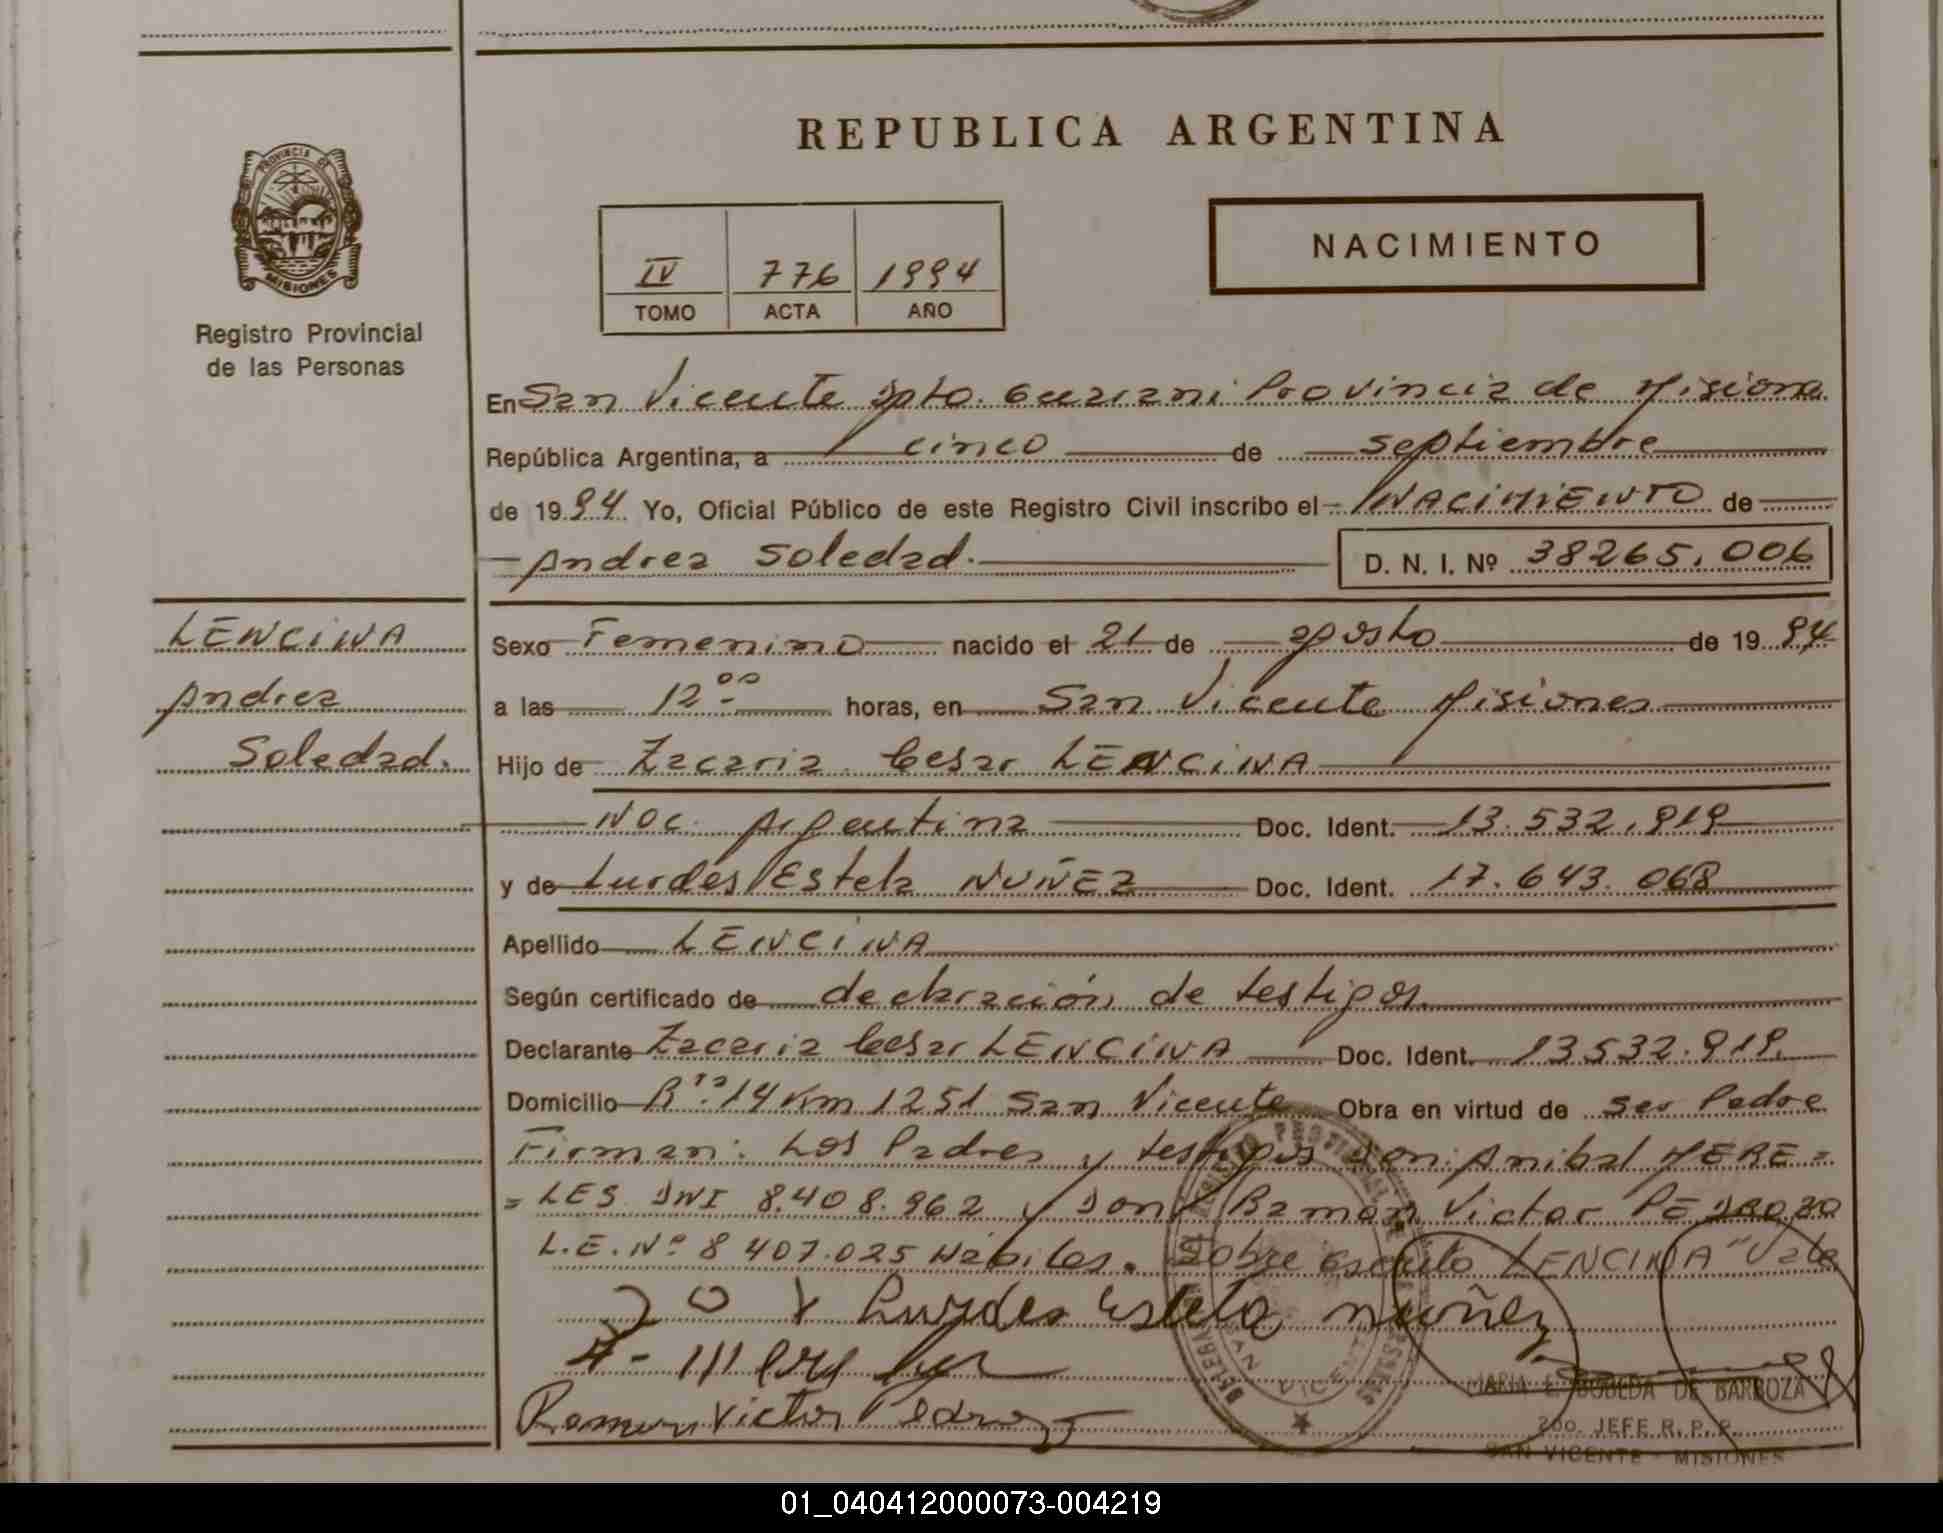 REPUBLICA ARGENTINA
PROVINCIA DE
MISIONES
Registro Provincial
de las Personas
NACIMIENTO
IV 776 1994
TOMO ACTA AÑO
En San Vicente Dpto. Guarani Provincia de Misiones
República Argentina, a cinco de septiembre
de 1994 Yo, Oficial Público de este Registro Civil inscribo el NACIMIENTO de
Andrea Soledad. D. N. I. Nº 38265.006
LENCINA
Andrea
Soledad.
Sexo Femenino nacido el 21 de agosto de 1994
a las 12.00 horas, en San Vicente Misiones
Hijo de Zacaria Cesar LENCINA
Nac. Argentina Doc. Ident. 13.532.919
y de Lurdes Estela NUÑEZ Doc. Ident. 17.643.068
Apellido LENCINA
Según certificado de declaración de testigos.
Declarante Zacaria Cesar LENCINA Doc. Ident. 13532.919.
Domicilio Rta. 14 Km 1251 San Vicente Obra en virtud de ser Padre
Firman: Los Padres y testigos Don: Anibal MERE=
=LES DNI 8.408.962 y Don Ramon Victor PEDROZO
L.E.Nº 8407.025 Habiles. Sobre escrito LENCINA" Vale
Lurdes Estela nuñez
Ramon Victor Pedrozo
MARIA E. BOBEDA DE BARBOZA
2do. JEFE R. P. P.
SAN VICENTE - MISIONES
01_040412000073-004219